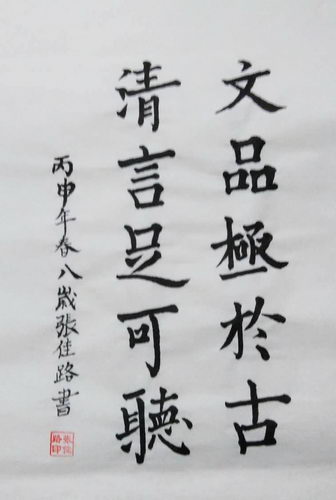 文品極於古
清言足可聽
丙申年春八歲張佳路書
張佳
路印